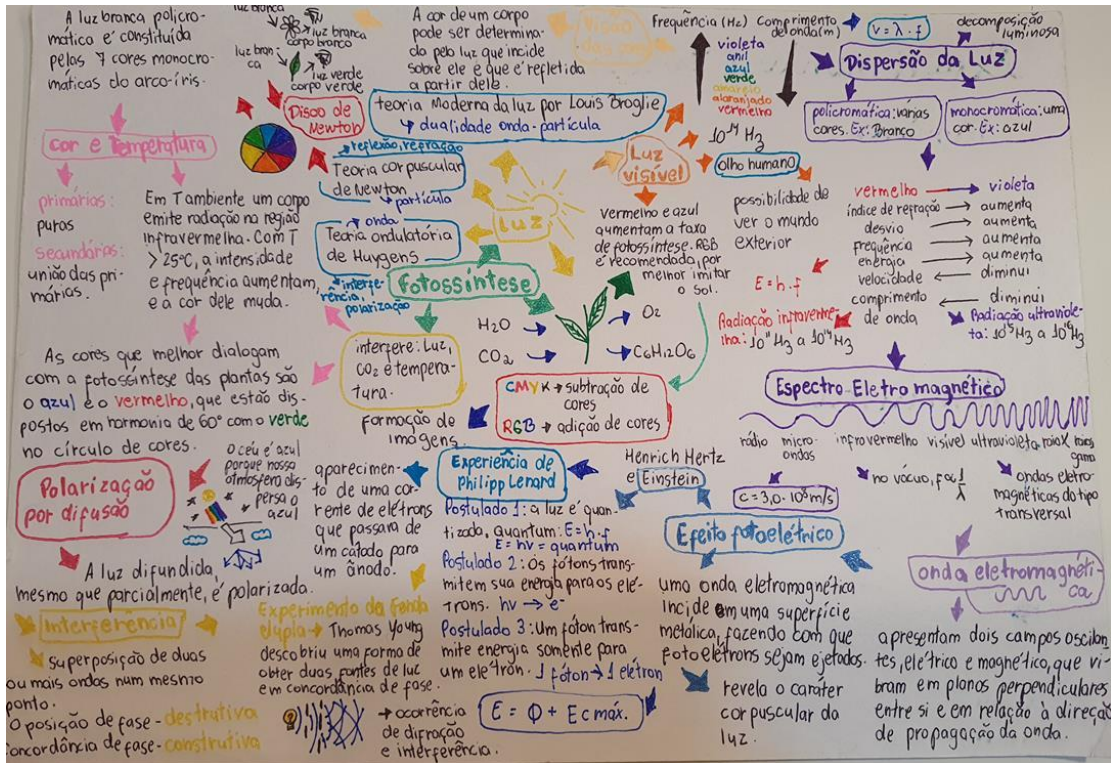 A luz branca policro-
mática é constituída
pelas 7 cores monocro-
máticas do arco-íris.
luz branca
luz branca
corpo branco
luz bran-
ca
luz verde
corpo verde
Disco de
Newton
A cor de um corpo
pode ser determina-
da pela luz que incide
sobre ele e que é refletida
a partir dele.
Visão
das cores
Frequência (Hz)
Comprimento
de onda (m)
violeta
anil
azul
verde
amarelo
alaranjado
vermelho
v = λ . f
decomposição
luminosa
Dispersão da Luz
policromática: várias
cores. Ex: Branco
monocromática: uma
cor. Ex: azul
teoria Moderna da luz por Louis Broglie
↳ dualidade onda-partícula
reflexão, refração
Teoria corpuscular
de Newton
↳ partícula
↳ onda
Teoria ondulatória
de Huygens
↳ interfe-
rência,
polarização
Luz
Luz
visível
10¹⁴ Hz
olho humano
possibilidade de
ver o mundo
exterior
vermelho e azul
aumentam a taxa
de fotossíntese. RGB
é recomendada, por
melhor imitar
o Sol.
E = h . f
Radiação infraverme-
lha: 10¹¹ Hz a 10¹⁴ Hz
vermelho → violeta
índice de refração → aumenta
desvio → aumenta
frequência → aumenta
energia → aumenta
velocidade ← diminui
comprimento ← diminui
de onda
Radiação ultraviole-
ta: 10¹⁵ Hz a 10¹⁶ Hz
cor e Temperatura
primárias:
puras
secundárias:
união das pri-
márias.
Em T ambiente um corpo
emite radiação na região
infravermelha. Com T
> 25°C, a intensidade
e frequência aumentam,
e a cor dele muda.
fotossíntese
H₂O
CO₂
O₂
C₆H₁₂O₆
interfere: Luz,
CO₂ e tempera-
tura.
As cores que melhor dialogam
com a fotossíntese das plantas são
o azul e o vermelho, que estão dis-
postos em harmonia de 60° com o verde
no círculo de cores.
CMYK → subtração de
cores
RGB → adição de cores
formação de
imagens.
Espectro Eletromagnético
rádio micro-
ondas infravermelho visível ultravioleta raio X raios
gama
c = 3,0 . 10⁸ m/s
no vácuo, f α 1/λ
ondas eletro-
magnéticas do tipo
transversal
Polarização
por difusão
o céu é azul
porque nossa
atmosfera dis-
persa o
azul
A luz difundida,
mesmo que parcialmente, é polarizada.
aparecimen-
to de uma cor-
rente de elétrons
que passara de
um catodo para
um ânodo.
Experiência de
Philipp Lenard
Henrich Hertz
e Einstein
Efeito fotoelétrico
Postulado 1: a luz é quan-
tizada. Quantum: E = h . f
E = hv = quantum
Postulado 2: Os fótons trans-
mitem sua energia para os elé-
trons. hv → e-
Postulado 3: Um fóton trans-
mite energia somente para
um elétron. 1 fóton → 1 elétron
E = Φ + E c máx.
uma onda eletromagnética
incide em uma superfície
metálica, fazendo com que
fotoelétrons sejam ejetados.
revela o caráter
corpuscular da
luz.
onda eletromagnéti-
ca
apresentam dois campos oscilan-
tes, elétrico e magnético, que vi-
bram em planos perpendiculares
entre si e em relação à direção
de propagação da onda.
Interferência
superposição de duas
ou mais ondas num mesmo
ponto.
Oposição de fase - destrutiva
Concordância de fase - construtiva
Experimento da Fenda
dupla → Thomas Young
descobriu uma forma de
obter duas fontes de luz
em concordância de fase.
→ ocorrência
de difração
e interferência.